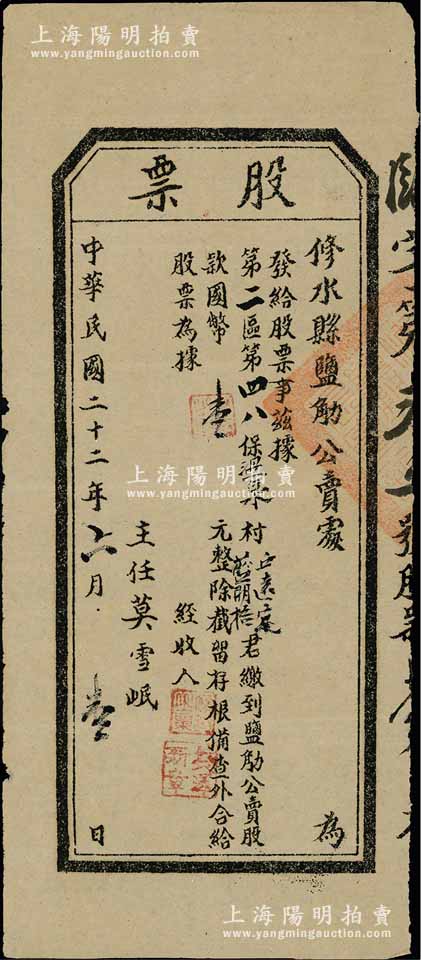 上海陽明拍賣
www.yangmingauction.com
股票
修水縣鹽觔公賣處 為
發給股票事茲據
第二區第四八保梁家村 君繳到鹽觔公賣股
款國幣壹元整除截留存根備查外合給
股票為據
經收人
主任莫雪岷
中華民國二十二年六月壹日
上海陽明拍賣
www.yangmingauction.com
上海陽明拍賣
www.yangmingauction.com